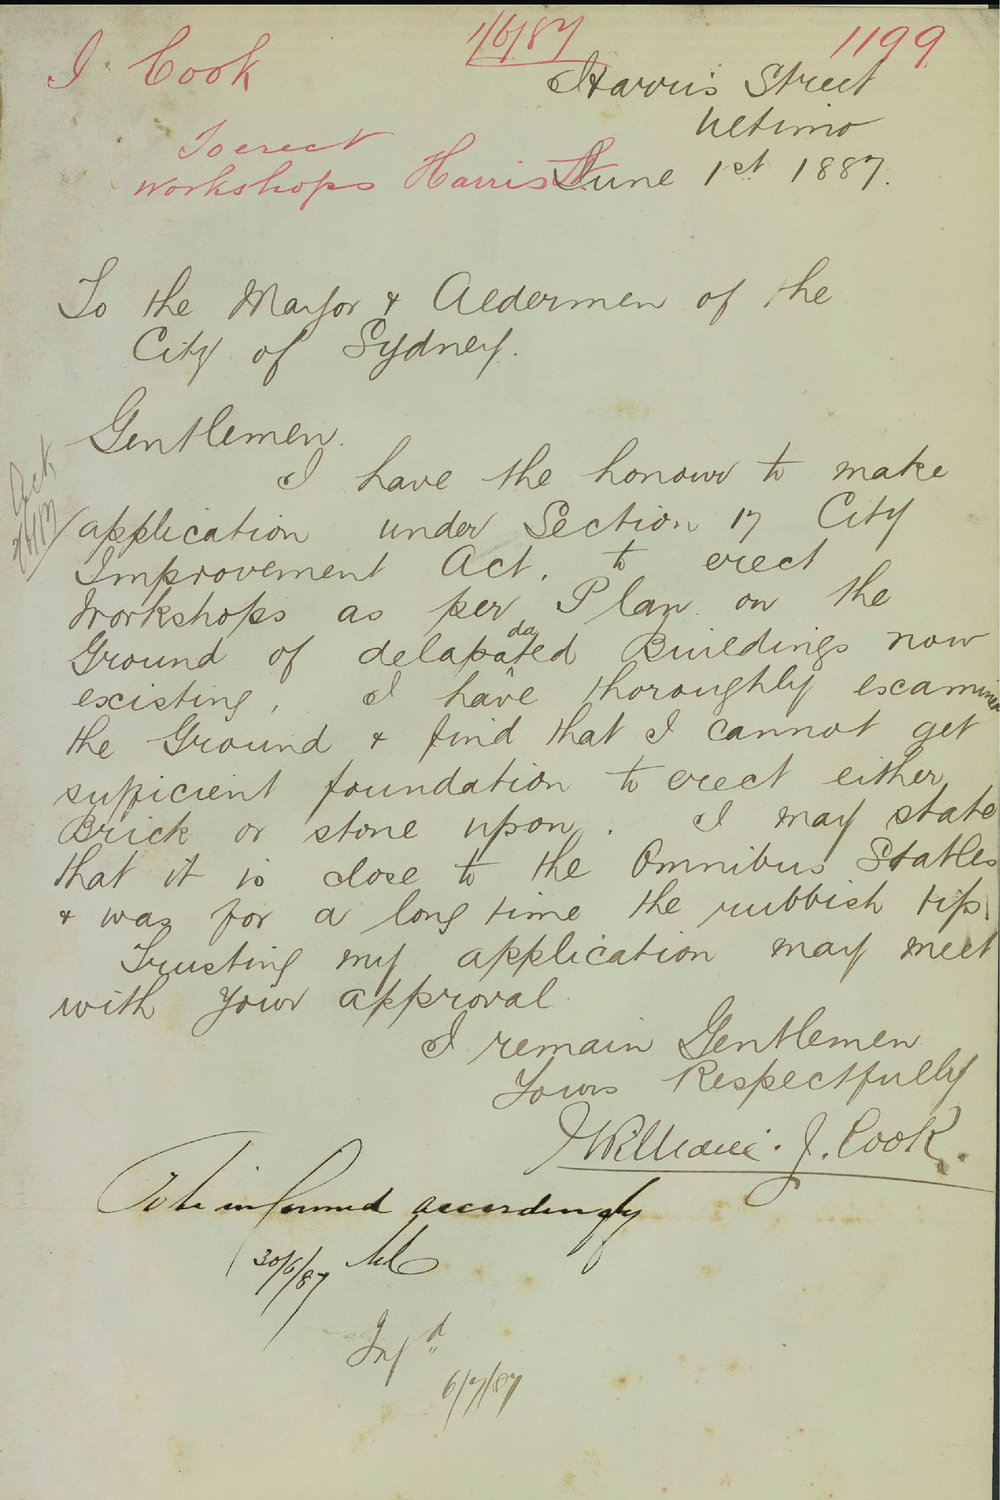 1/6/87
1199
J Cook
Harris Street
Ultimo
To erect
workshops Harris St
June 1st 1887.
To the Mayor & Aldermen of the
City of Sydney.
Gentlemen.
I have the honour to make
application under Section 17 City
Improvement Act, to erect
Workshops as per Plan on the
Ground of delapadated Buildings now
existing, I have thoroughly examined
the Ground & find that I cannot get
sufficient foundation to erect either
Brick or stone upon. I may state
that it is close to the Omnibus Statles
& was for a long time the rubbish tip
Trusting my application may meet
with your approval
I remain Gentlemen
Yours Respectfully
William. J. Cook.
Ack
To be informed accordingly
30/6/87
Infd
6/7/87